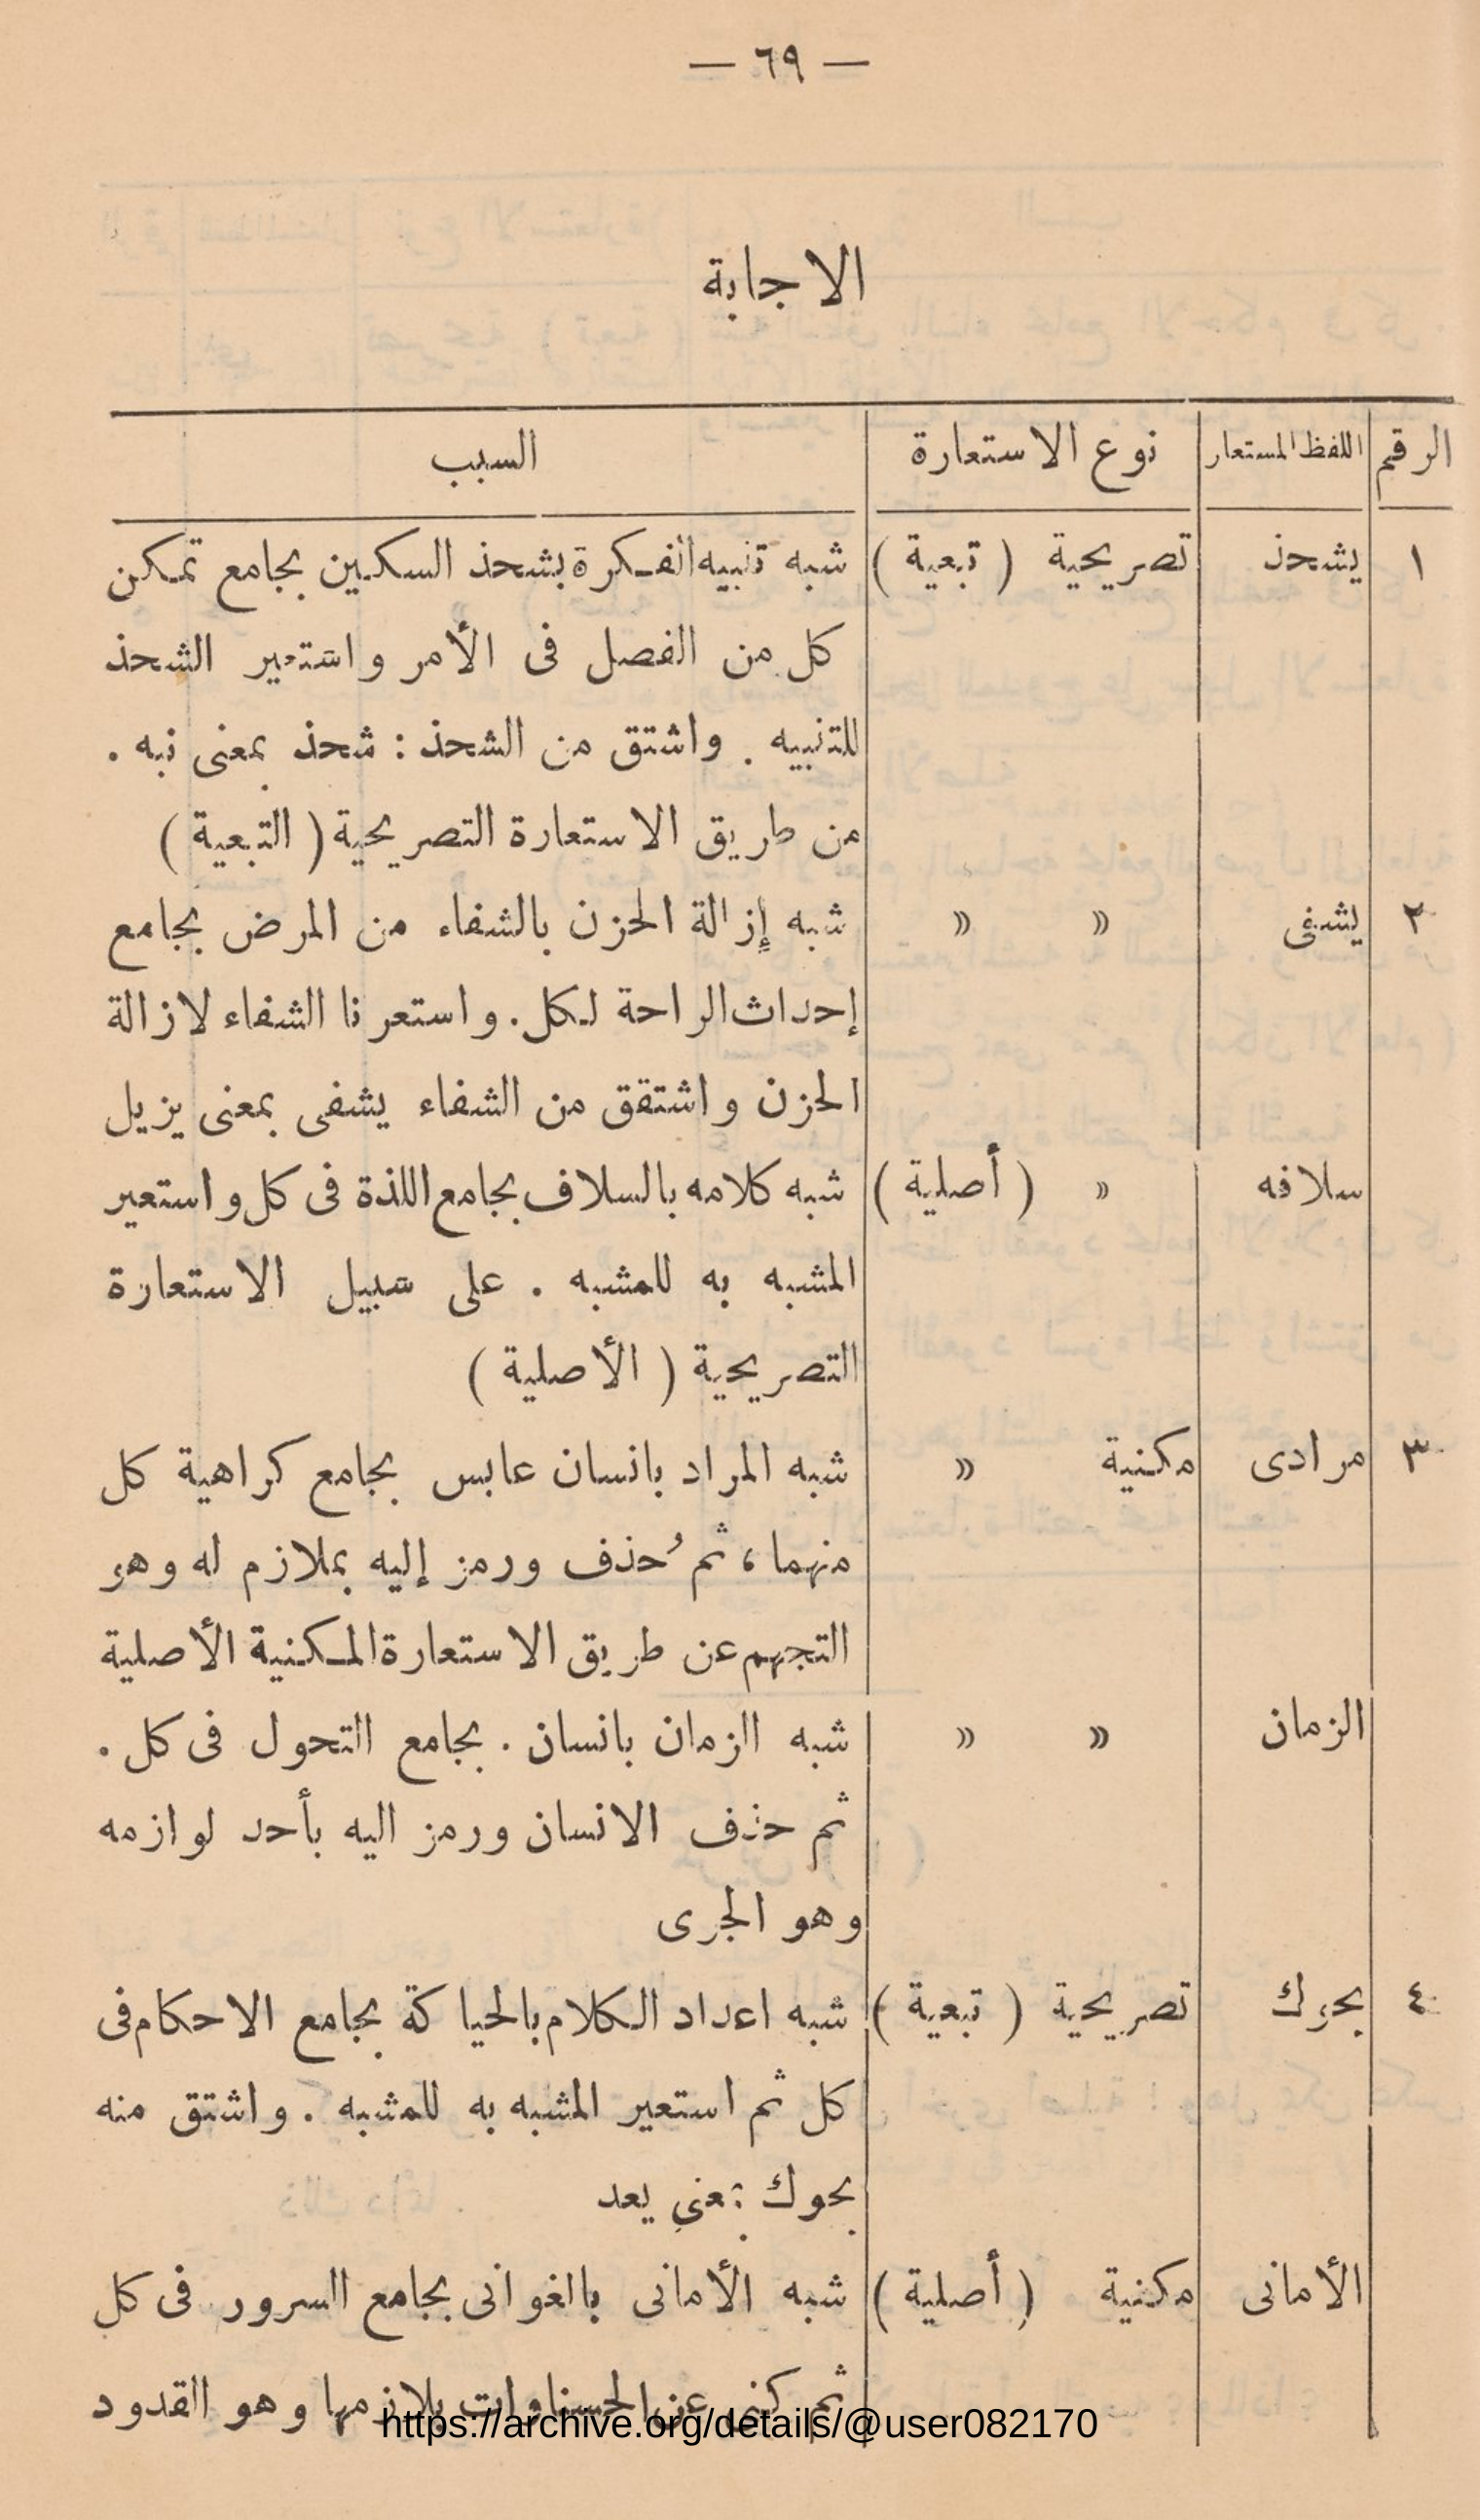 — ٦٩ —
الاجابة
الرقم اللفظ المستعار نوع الاستعارة السبب
١ يشحذ تصريحية ( تبعية ) شبه تنبيه الفكرة بشحذ السكين بجامع تمكن
كل من الفصل فى الأمر واستعير الشحذ
للتنبيه . واشتق من الشحذ : شحذ بمعنى نبه .
من طريق الاستعارة التصريحية ( التبعية )
٢ يشفى » » شبه إزالة الحزن بالشفاء من المرض بجامع
إحداث الراحة لكل . واستعرنا الشفاء لازالة
الحزن واشتقق من الشفاء يشفى بمعنى يزيل
سلافه » ( أصلية ) شبه كلامه بالسلاف بجامع اللذة فى كل واستعير
المشبه به للمشبه . على سبيل الاستعارة
التصريحية ( الأصلية )
٣ مرادى مكنية » شبه المراد بانسان عابس بجامع كراهية كل
منهما ، ثم ُحذف ورمز إليه بملازم له وهو
التجهم عن طريق الاستعارة المكنية الأصلية
الزمان » » شبه الزمان بانسان . بجامع التحول فى كل .
ثم حذف الانسان ورمز اليه بأحد لوازمه
وهو الجرى
٤ يحوك تصريحية ( تبعية ) شبه اعداد الكلام بالحياكة بجامع الاحكام فى
كل ثم استعير المشبه به للمشبه . واشتق منه
يحوك بمعنى يعد
الأمانى مكنية ( أصلية ) شبه الأمانى بالغوانى بجامع السرور فى كل
ثم كنى عن الحسناوات بلازمها وهو القدود
https://archive.org/details/@user082170